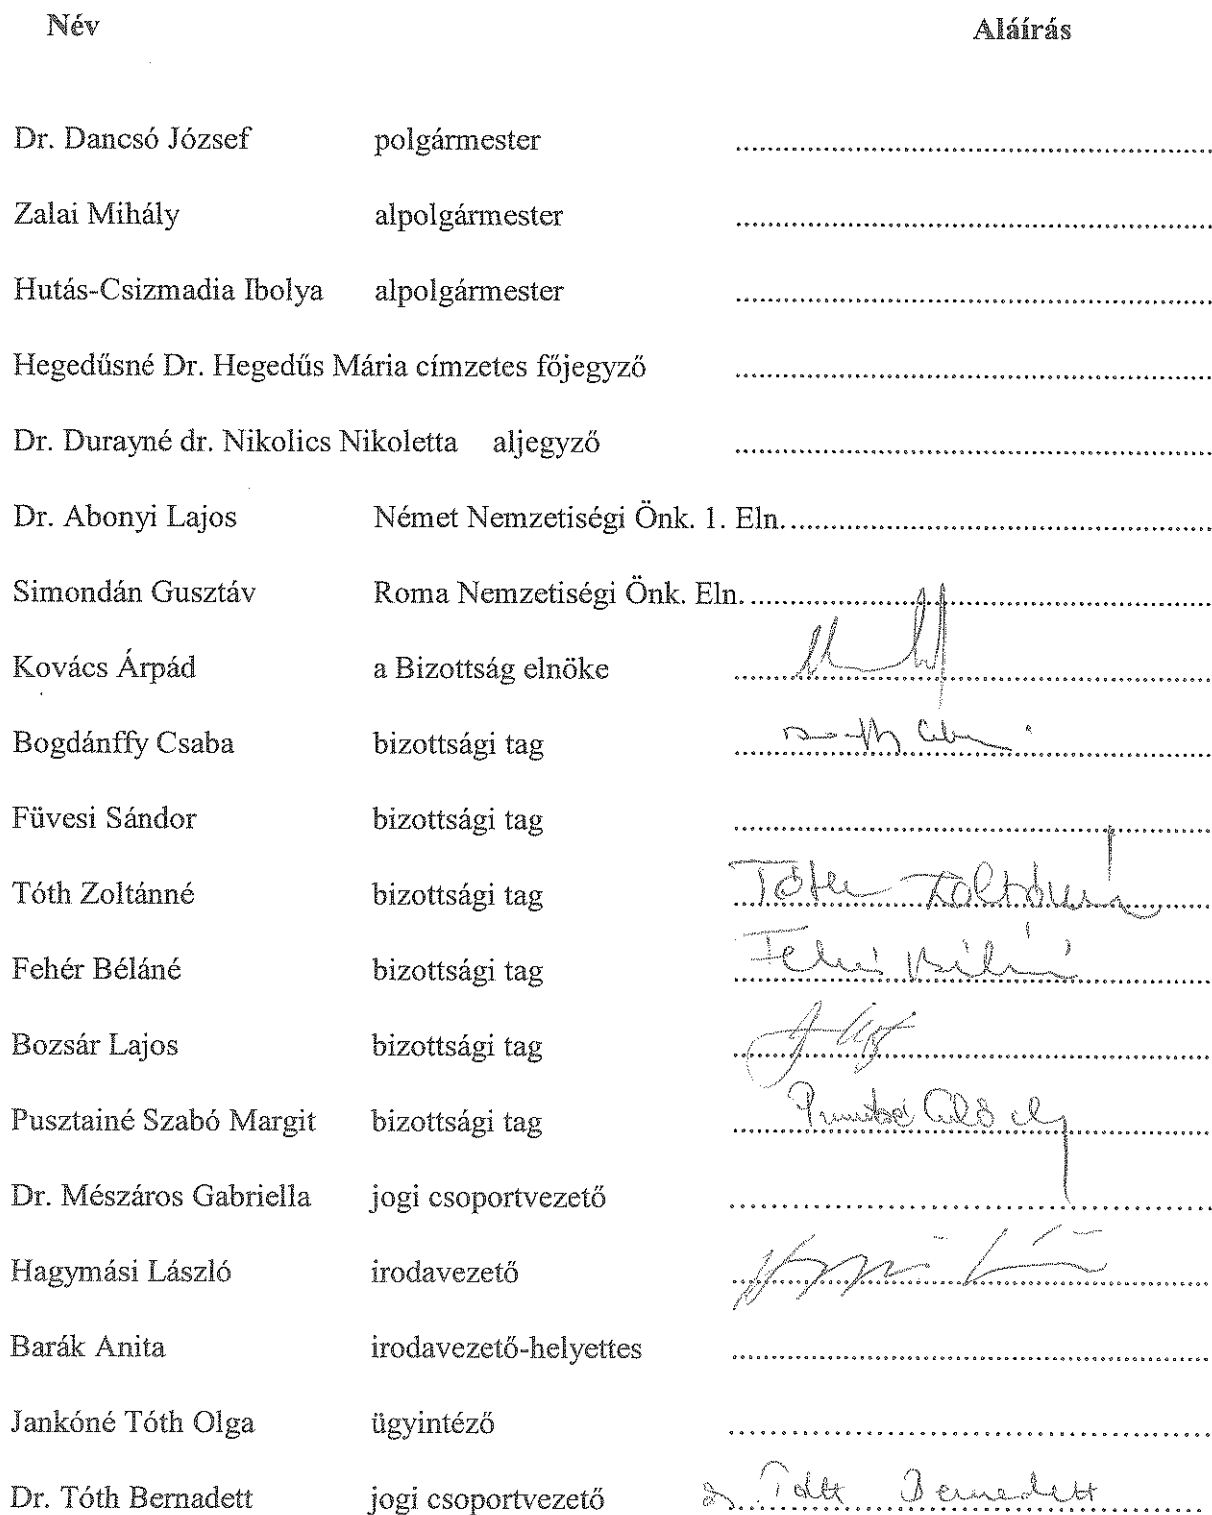 Név Aláírás
Dr. Dancsó József polgármester ........................................
Zalai Mihály alpolgármester ........................................
Hutás-Csizmadia Ibolya alpolgármester ........................................
Hegedűsné Dr. Hegedűs Mária címzetes főjegyző ........................................
Dr. Durayné dr. Nikolics Nikoletta aljegyző ........................................
Dr. Abonyi Lajos Német Nemzetiségi Önk. 1. Eln. ........................................
Simondán Gusztáv Roma Nemzetiségi Önk. Eln. ........................................
Kovács Árpád a Bizottság elnöke ........................................
Bogdánffy Csaba bizottsági tag ........................................
Füvesi Sándor bizottsági tag ........................................
Tóth Zoltánné bizottsági tag Tóth Zoltánné
Fehér Béláné bizottsági tag Fehér Béláné
Bozsár Lajos bizottsági tag ........................................
Pusztainé Szabó Margit bizottsági tag ........................................
Dr. Mészáros Gabriella jogi csoportvezető ........................................
Hagymási László irodavezető ........................................
Barák Anita irodavezető-helyettes ........................................
Jankóné Tóth Olga ügyintéző ........................................
Dr. Tóth Bernadett jogi csoportvezető dr. Tóth Bernadett